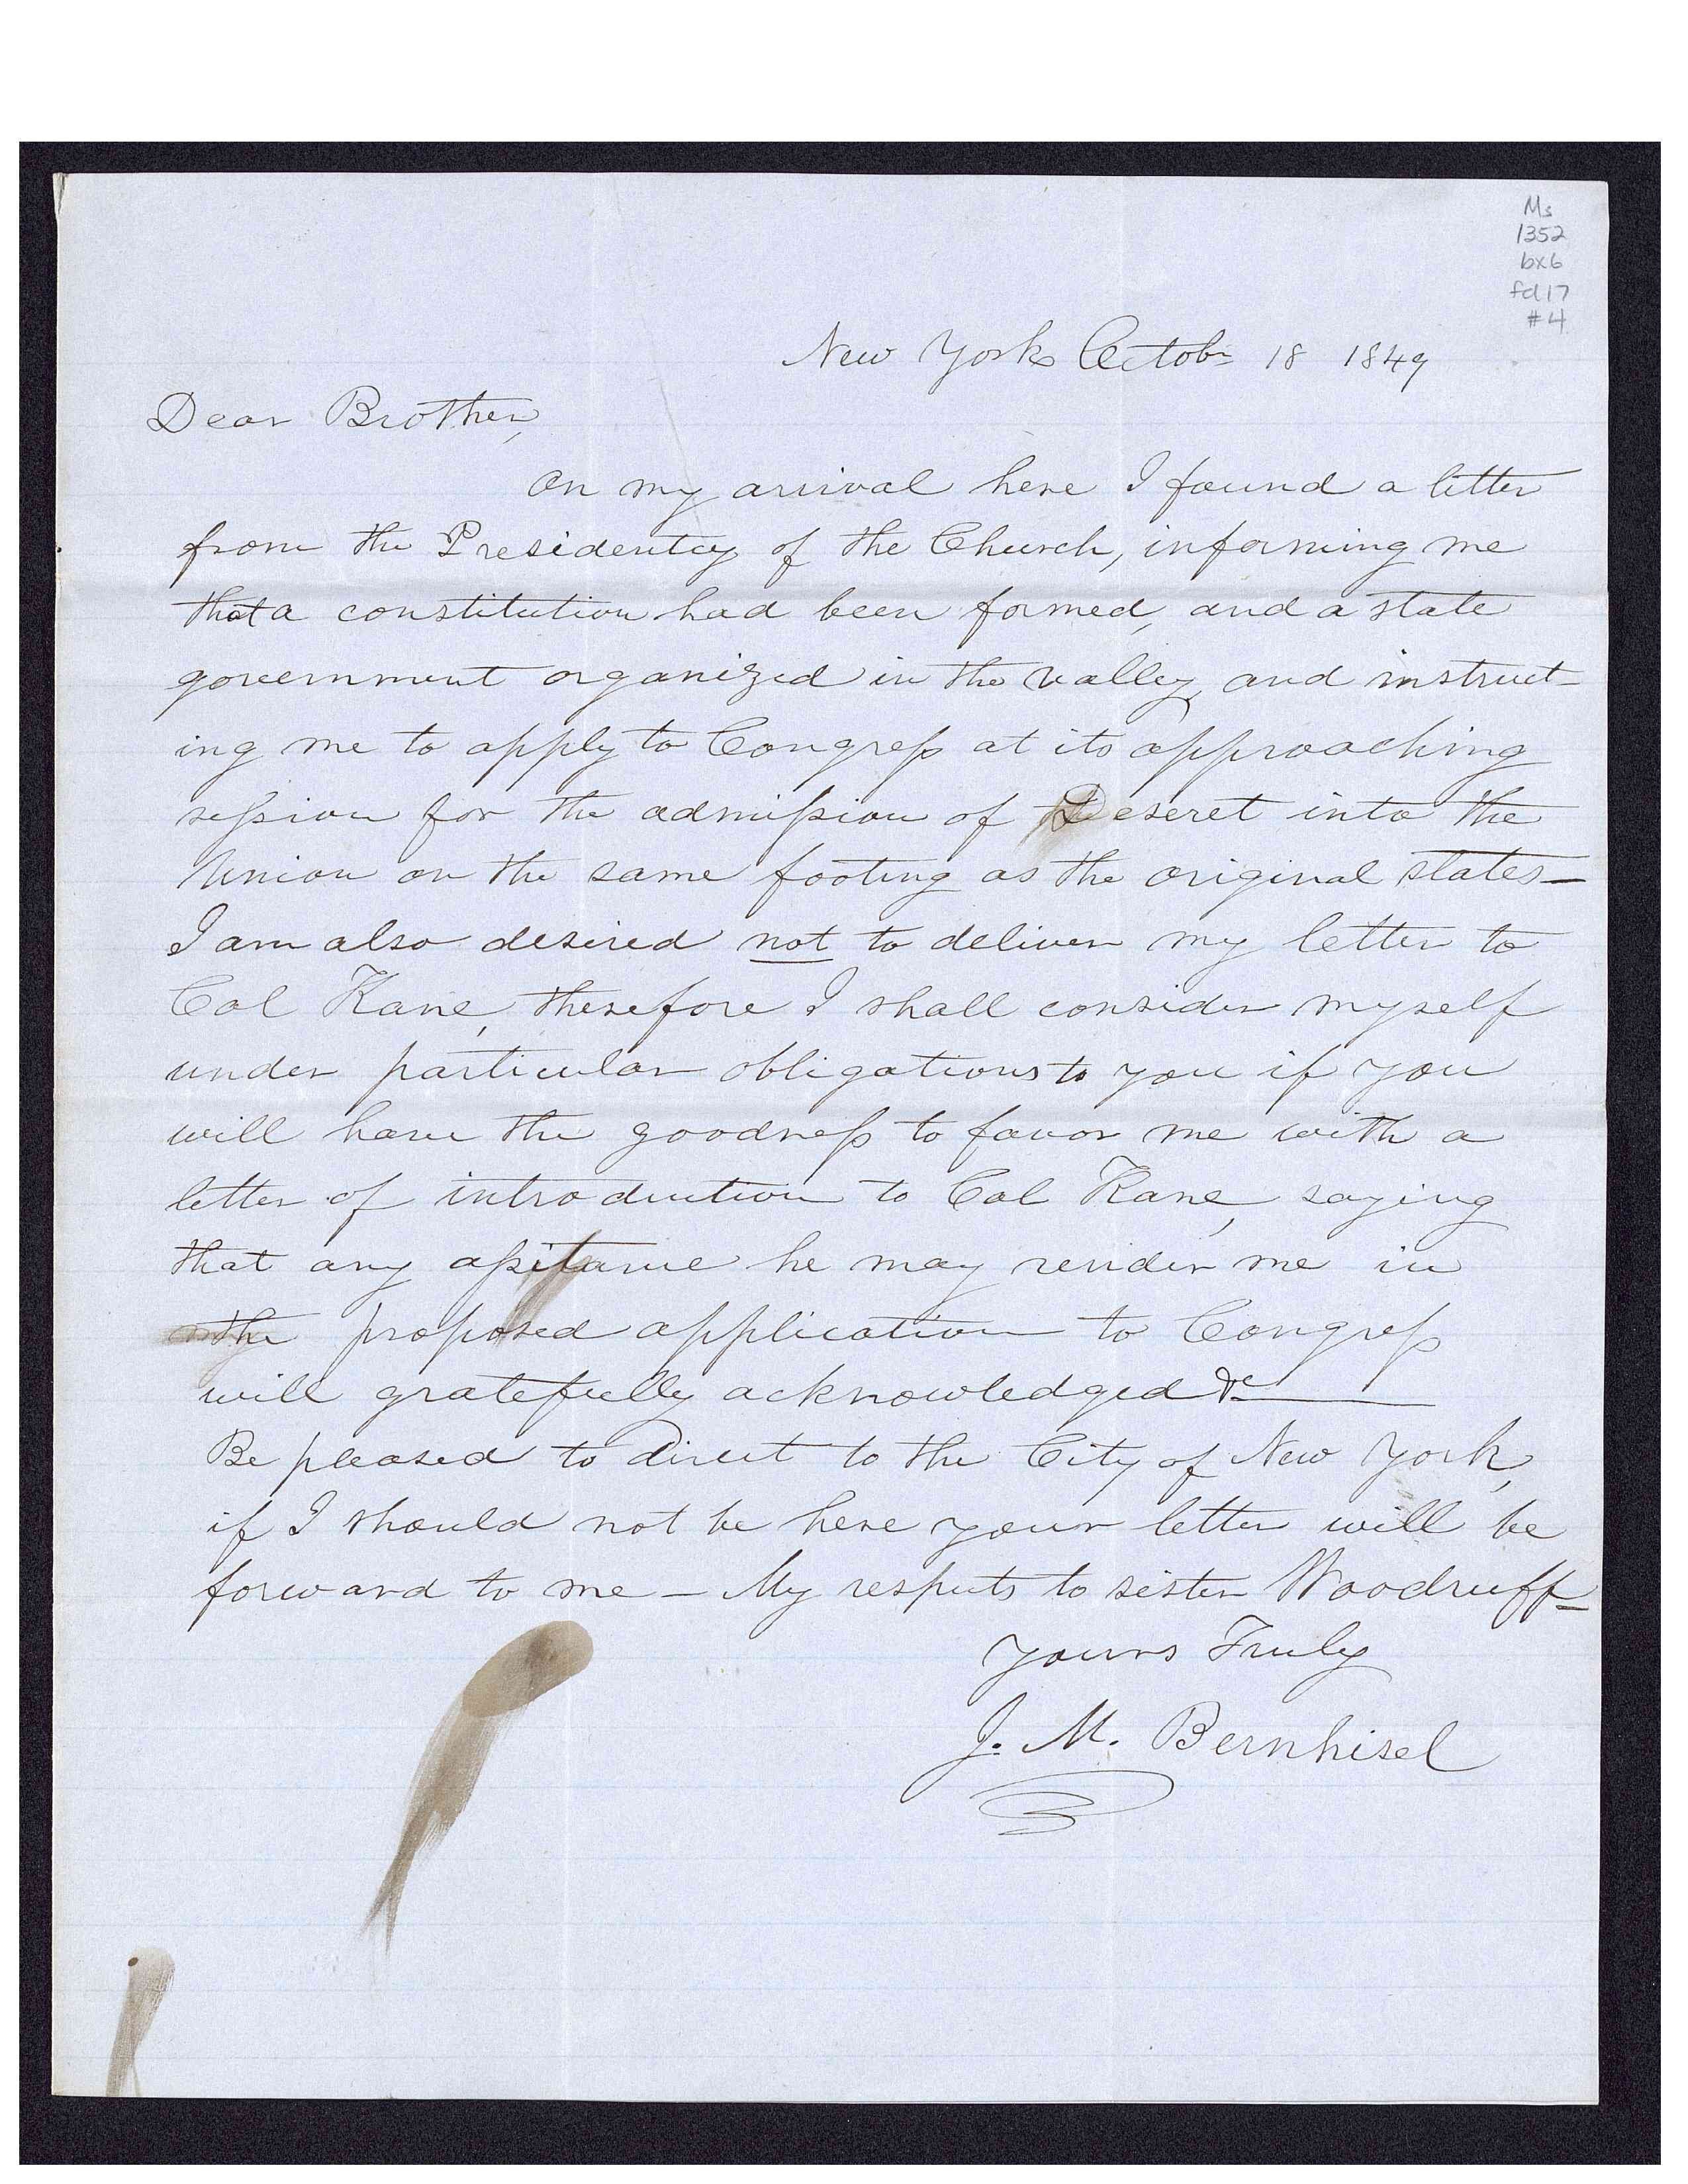 Ms
1352
bx6
fd17
#4
New York Octobr 18 1849
Dear Brother,
On my arrival here I found a letter
from the Presidentcy of the Church, informing me
that a constitution had been formed, and a state
government organized in the valley, and instruct-
ing me to apply to Congress at its approaching
session for the admission of Deseret into the
Union on the same footing as the original states—
I am also desired not to deliver my letter to
Col Kane, therefore I shall consider myself
under particular obligations to you if you
will have the goodness to favor me with a
letter of introduction to Col Kane, saying
that any assitance he may render me in
the proposed application to Congress
will gratefully acknowledged &c
Be pleased to direct to the City of New York,
if I should not be here your letter will be
forward to me — My respects to sister Woodruff—
Yours Truly
J. M. Bernhisel